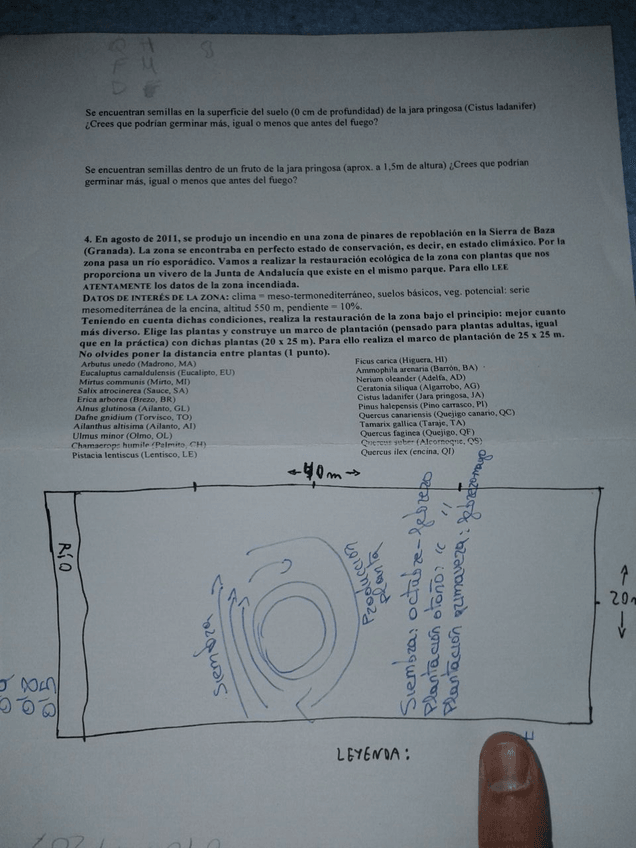 Q H
F U 8
D E
Se encuentran semillas en la superficie del suelo (0 cm de profundidad) de la jara pringosa (Cistus ladanifer)
¿Crees que podrían germinar más, igual o menos que antes del fuego?
Se encuentran semillas dentro de un fruto de la jara pringosa (aprox. a 1,5m de altura) ¿Crees que podrían
germinar más, igual o menos que antes del fuego?
4. En agosto de 2011, se produjo un incendio en una zona de pinares de repoblación en la Sierra de Baza
(Granada). La zona se encontraba en perfecto estado de conservación, es decir, en estado climáxico. Por la
zona pasa un río esporádico. Vamos a realizar la restauración ecológica de la zona con plantas que nos
proporciona un vivero de la Junta de Andalucía que existe en el mismo parque. Para ello LEE
ATENTAMENTE los datos de la zona incendiada.
DATOS DE INTERÉS DE LA ZONA: clima = meso-termonediterráneo, suelos básicos, veg. potencial: serie
mesomediterránea de la encina, altitud 550 m, pendiente = 10%.
Teniendo en cuenta dichas condiciones, realiza la restauración de la zona bajo el principio: mejor cuanto
más diverso. Elige las plantas y construye un marco de plantación (pensado para plantas adultas, igual
que en la práctica) con dichas plantas (20 x 25 m). Para ello realiza el marco de plantación de 25 x 25 m.
No olvides poner la distancia entre plantas (1 punto).
Arbutus unedo (Madroño, MA)
Eucaluptus camaldulensis (Eucalipto, EU)
Mirtus communis (Mirto, MI)
Salix atrocinerea (Sauce, SA)
Erica arborea (Brezo, BR)
Alnus glutinosa (Ailanto, GL)
Dafne gnidium (Torvisco, TO)
Ailanthus altissima (Ailanto, AI)
Ulmus minor (Olmo, OL)
Chamaerops humile (Palmito, CH)
Pistacia lentiscus (Lentisco, LE)
Ficus carica (Higuera, HI)
Ammophila arenaria (Barrón, BA)
Nerium oleander (Adelfa, AD)
Ceratonia siliqua (Algarrobo, AG)
Cistus ladanifer (Jara pringosa, JA)
Pinus halepensis (Pino carrasco, PI)
Quercus canariensis (Quejigo canario, QC)
Tamarix gallica (Taraje, TA)
Quercus faginea (Quejigo, QF)
Quercus suber (Alcornoque, QS)
Quercus ilex (encina, QI)
40m
RÍO
Siembra
Producción
planta
Siembra: octubre-febrero
Plantación otoño: " "
Plantación primavera: febrero mayo
20m
LEYENDA: